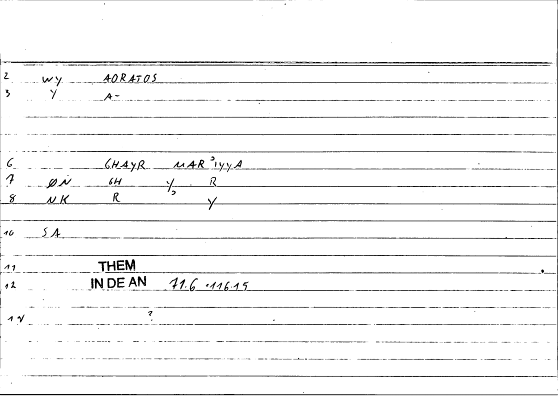 2 wy AORATOS
3 y A-
6 GHAYR MAR'IYYA
7 ØN GH y' R
8 NK R y
10 SA
11 THEM
12 IN DE AN 71.6 • 116.15
?